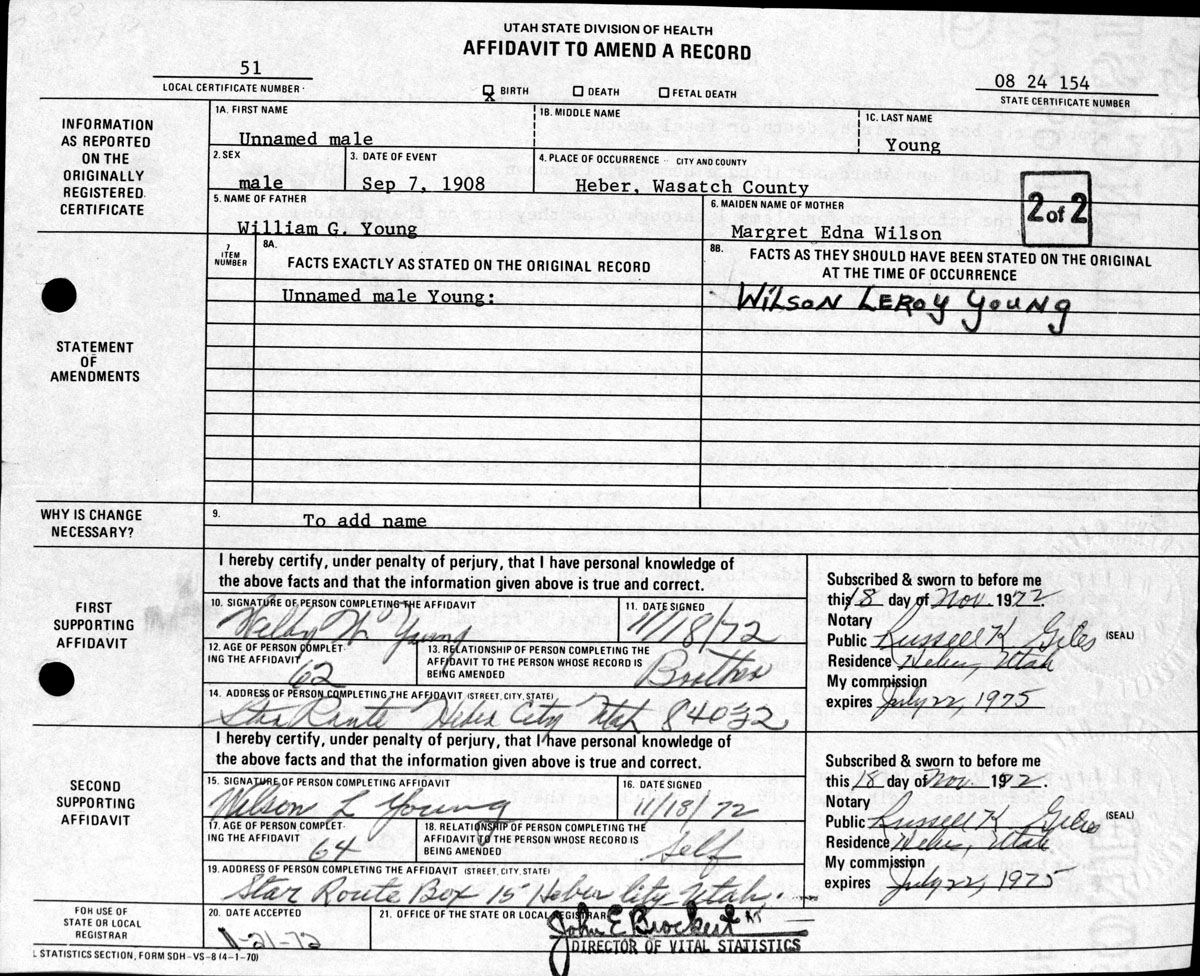 UTAH STATE DIVISION OF HEALTH
AFFIDAVIT TO AMEND A RECORD
51
LOCAL CERTIFICATE NUMBER
X BIRTH DEATH FETAL DEATH
08 24 154
STATE CERTIFICATE NUMBER
INFORMATION
AS REPORTED
ON THE
ORIGINALLY
REGISTERED
CERTIFICATE
1A. FIRST NAME
Unnamed male
1B. MIDDLE NAME
1C. LAST NAME
Young
2. SEX
male
3. DATE OF EVENT
Sep 7, 1908
4. PLACE OF OCCURRENCE - CITY AND COUNTY
Heber, Wasatch County
5. NAME OF FATHER
William G. Young
6. MAIDEN NAME OF MOTHER
Margret Edna Wilson
2 of 2
STATEMENT
OF
AMENDMENTS
7
ITEM
NUMBER
8A.
FACTS EXACTLY AS STATED ON THE ORIGINAL RECORD
Unnamed male Young:
8B.
FACTS AS THEY SHOULD HAVE BEEN STATED ON THE ORIGINAL
AT THE TIME OF OCCURRENCE
WILSON LEROY YOUNG
WHY IS CHANGE
NECESSARY?
9.
To add name
FIRST
SUPPORTING
AFFIDAVIT
I hereby certify, under penalty of perjury, that I have personal knowledge of
the above facts and that the information given above is true and correct.
10. SIGNATURE OF PERSON COMPLETING THE AFFIDAVIT
Welby W Young
11. DATE SIGNED
11/18/72
12. AGE OF PERSON COMPLET-
ING THE AFFIDAVIT
62
13. RELATIONSHIP OF PERSON COMPLETING THE
AFFIDAVIT TO THE PERSON WHOSE RECORD IS
BEING AMENDED
Brother
14. ADDRESS OF PERSON COMPLETING THE AFFIDAVIT (STREET, CITY, STATE)
Star Route Heber City Utah 84032
Subscribed & sworn to before me
this 18 day of Nov. 1972.
Notary
Public Russell K Giles (SEAL)
Residence Heber, Utah
My commission
expires July 22, 1975
SECOND
SUPPORTING
AFFIDAVIT
I hereby certify, under penalty of perjury, that I have personal knowledge of
the above facts and that the information given above is true and correct.
15. SIGNATURE OF PERSON COMPLETING AFFIDAVIT
Wilson L Young
16. DATE SIGNED
11/18/72
17. AGE OF PERSON COMPLET-
ING THE AFFIDAVIT
64
18. RELATIONSHIP OF PERSON COMPLETING THE
AFFIDAVIT TO THE PERSON WHOSE RECORD IS
BEING AMENDED
Self
19. ADDRESS OF PERSON COMPLETING THE AFFIDAVIT (STREET, CITY, STATE)
Star Route Box 15 Heber City Utah
Subscribed & sworn to before me
this 18 day of Nov. 1972.
Notary
Public Russell K Giles (SEAL)
Residence Heber, Utah
My commission
expires July 22, 1975
FOR USE OF
STATE OR LOCAL
REGISTRAR
20. DATE ACCEPTED
11-21-72
21. OFFICE OF THE STATE OR LOCAL REGISTRAR
John E Brockert
DIRECTOR OF VITAL STATISTICS
L STATISTICS SECTION, FORM SDH-VS-8 (4-1-70)